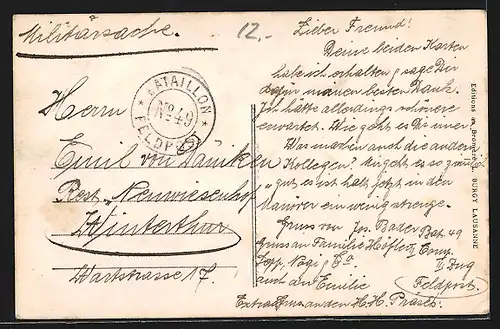 Militärsache.
12.-
BATAILLON
No 49
FELDPOST
Herrn
Emil von Däniken
Rest. Neuwiesenhof
Winterthur
Wartstrasse 17.
Lieber Freund!
Deine beiden Karten
habe ich erhalten & sage Dir
dafür meinen besten Dank.
Ich hätte allerdings schönere
erwartet. Wie geht es Dir immer
Was machen auch die andern
Kollegen? Mir geht es so ziemlich
gut, es ist halt jetzt in den
Manöver ein wenig strenge.
Gruss von Jos. Bader Bat. 49
Gruss an Familie Höfler II Comp.
Vogi & Co II Zug
auch an die Emilie Feldpost.
Extra Gruss an den H. H. Präses.
Editions BURGY LAUSANNE